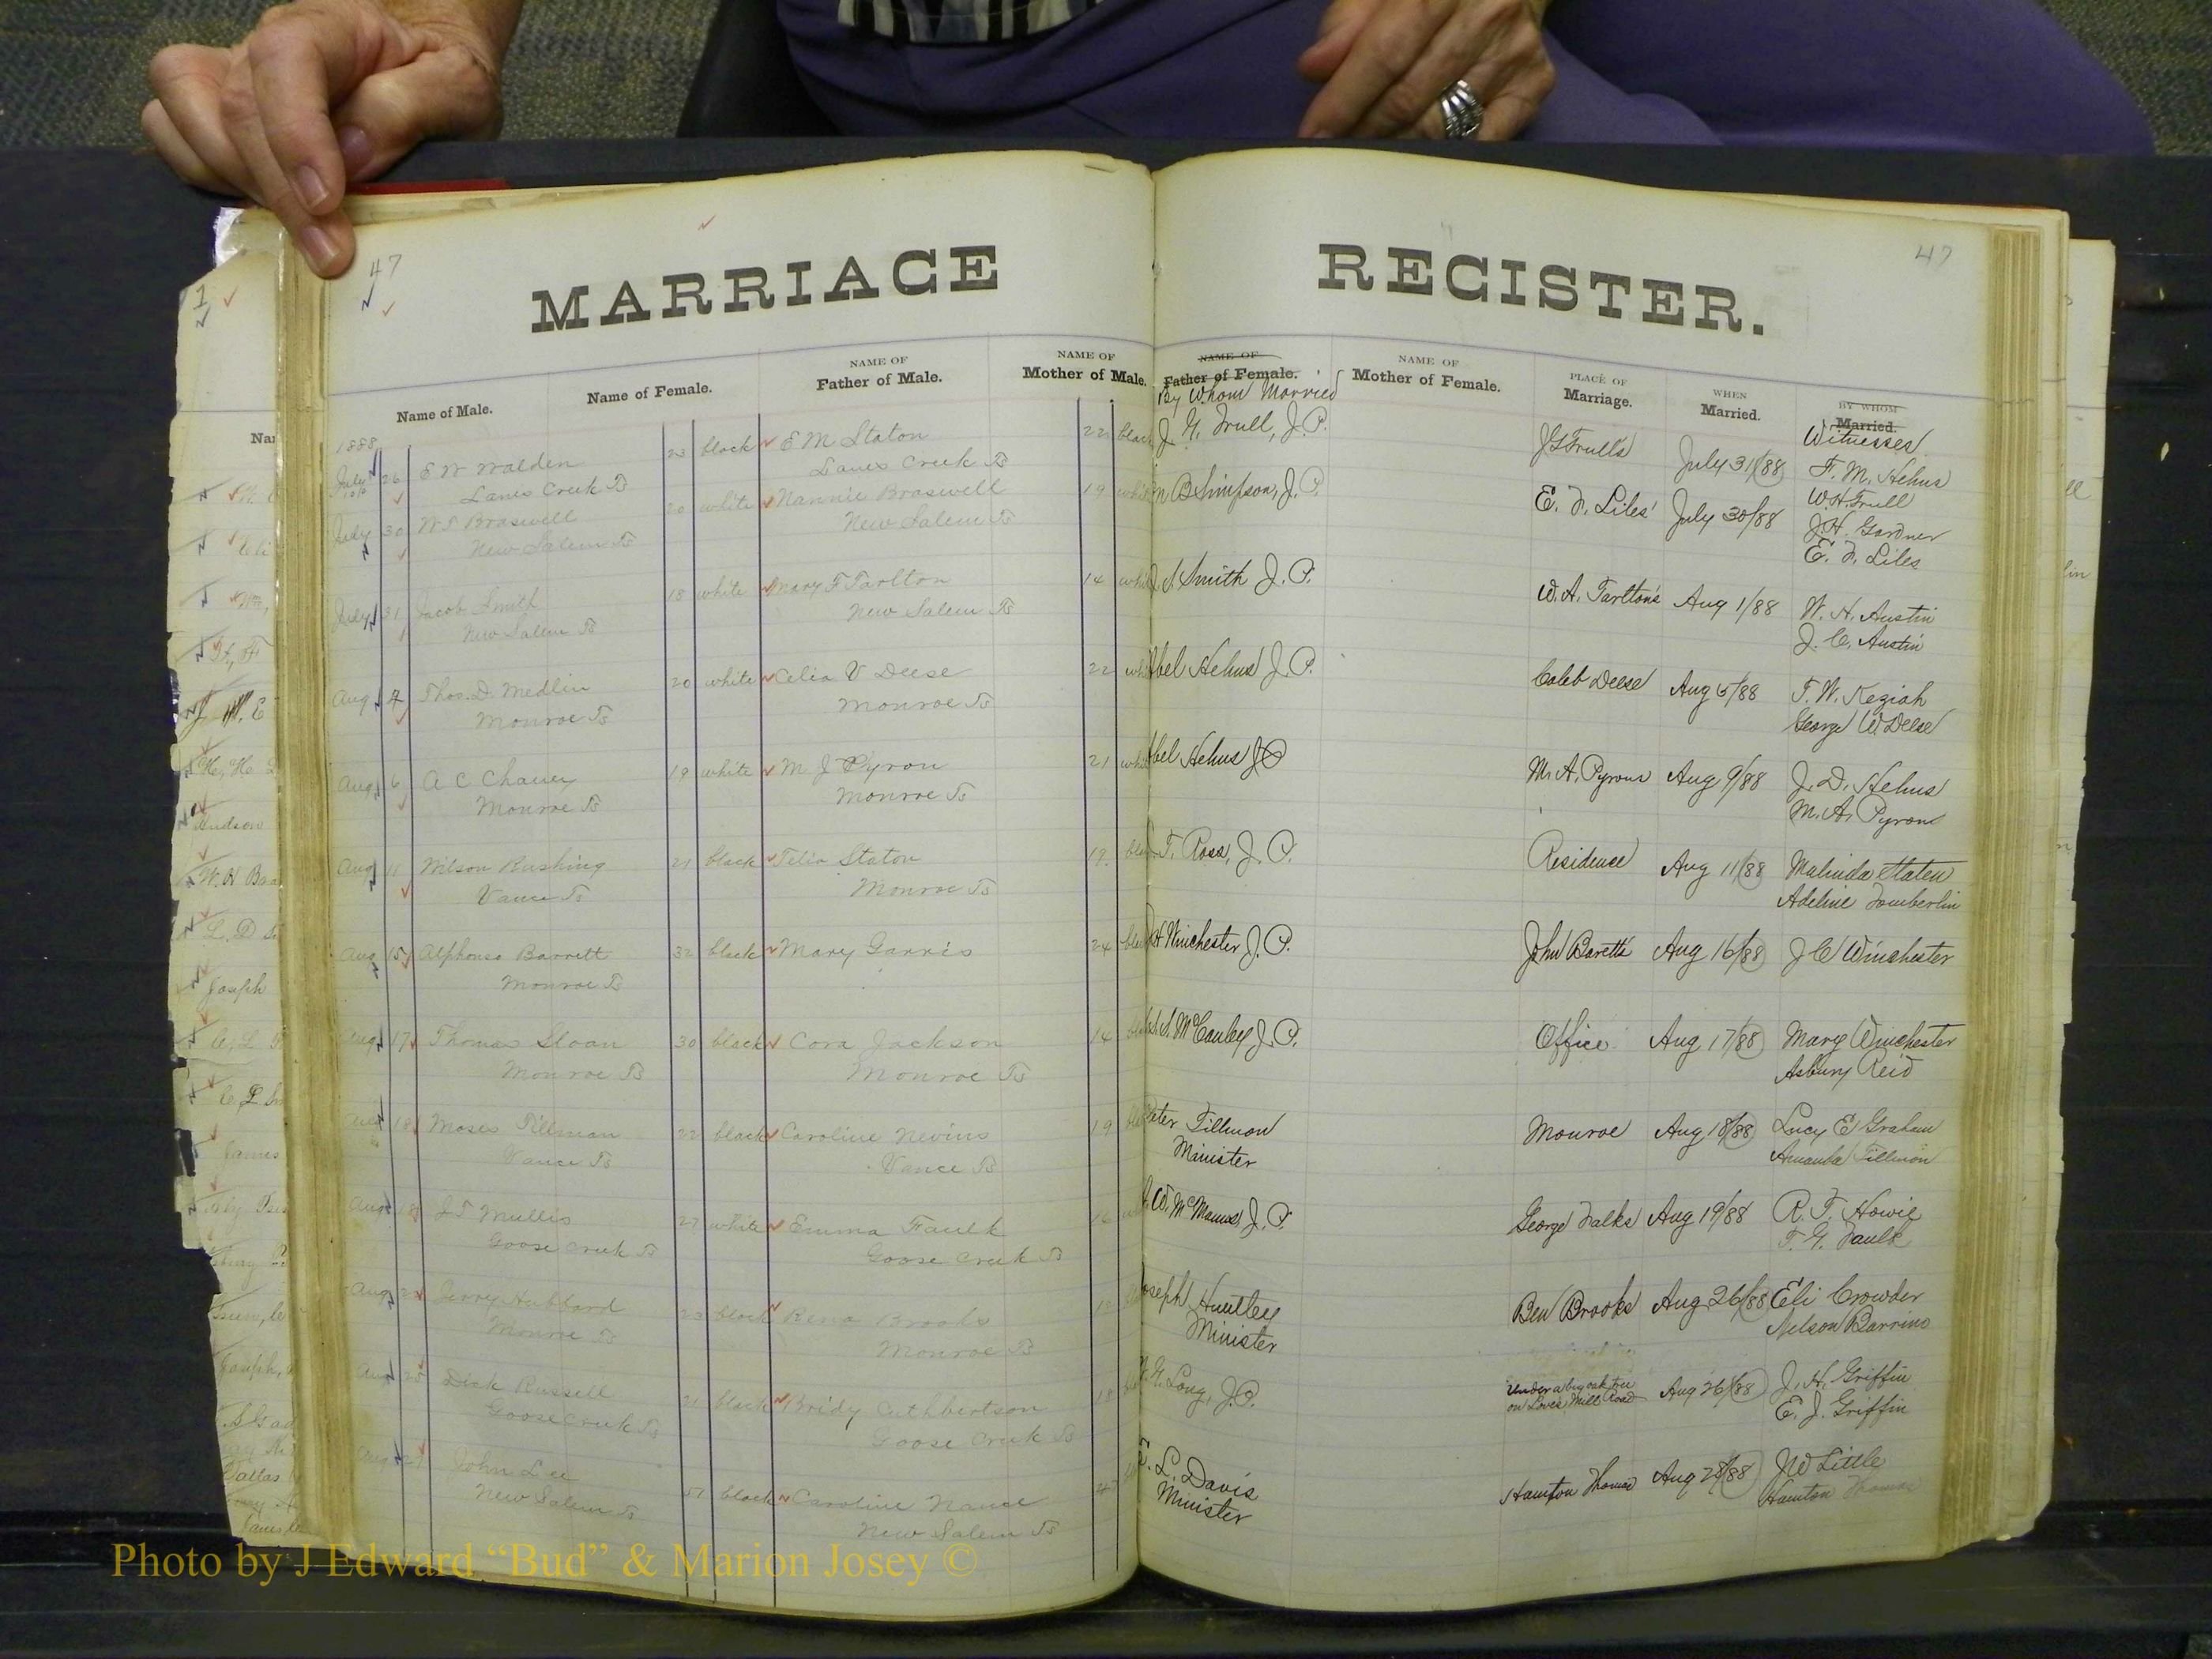 47
MARRIAGE
REGISTER.
47
1
Name of Male.
Name of Female.
NAME OF
Father of Male.
NAME OF
Mother of Male.
NAME OF
Father of Female.
By Whom Married
NAME OF
Mother of Female.
PLACE OF
Marriage.
WHEN
Married.
BY WHOM
Married.
Witnesses
1888
July 26 E W Walden 23 black E M Staton 22 black J. G. Trull, J. P. J G Trull's July 31/88 F. M. Helms
Lanes Creek Ts Lanes Creek Ts W. H. Trull
July 30 W S Braswell 20 white Nannie Braswell 19 B Simpson, J. P. E. F. Liles' July 30/88 J. H. Gardner
New Salem Ts New Salem Ts E. F. Liles
July 31 Jacob Smith 18 white Mary F Tarlton 14 S Smith J. P. W. A. Tarlton's Aug 1/88 W. H. Austin
New Salem Ts New Salem Ts J. C. Austin
Aug 4 Thos. D. Medlin 20 white Celia V Deese 22 Abel Helms J. P. Caleb Deese Aug 5/88 T. W. Keziah
Monroe Ts Monroe Ts George W Deese
Aug 6 A C Chaney 19 white M J Pyron 21 Abel Helms J P M. A. Pyrons Aug 9/88 J. D. Helms
Monroe Ts Monroe Ts M. A. Pyron
Aug 11 Wilson Rushing 21 black Telia Staton 19 T. Ross, J. P. Residence Aug 11/88 Malinda Staten
Vance Ts Monroe Ts Adeline Tomberlin
Aug 15 Alphonso Barrett 32 black Mary Garris 24 H Winchester J. P. John Barett's Aug 16/88 J C Winchester
Monroe Ts
Aug 17 Thomas Sloan 30 black Cora Jackson 14 McCauley J. P. Office Aug 17/88 Mary Winchester
Monroe Ts Monroe Ts Asbury Reid
Aug 18 Moses Tillman 22 black Caroline Nevins 19 Peter Tillmon Monroe Aug 18/88 Lucy E Graham
Vance Ts Vance Ts Minister Amanda Tillmon
Aug 18 J T Mullis 27 white Emma Faulk 16 W. McManus, J. P. George Falks Aug 19/88 R. T. Howie
Goose Creek Ts Goose Creek Ts T. G. Faulk
Aug Jerry Hubbard 23 black Rena Brooks Joseph Huntley Ben Brooks Aug 26/88 Eli Crowder
Monroe Ts Monroe Ts Minister Nelson Barrino
Aug 25 Dick Russell 21 black Bridy Cuthbertson 18 Long, J. P. under a big oak tree Aug 26/88 J. H. Griffin
Goose Creek Ts Goose Creek Ts on Loves Mill Road E. J. Griffin
Aug John Lee black Caroline Nance L. Davis Hamton Thomas Aug 28/88 J W Little
New Salem Ts New Salem Ts Minister Hamton Thomas
Photo by J Edward “Bud” & Marion Josey ©